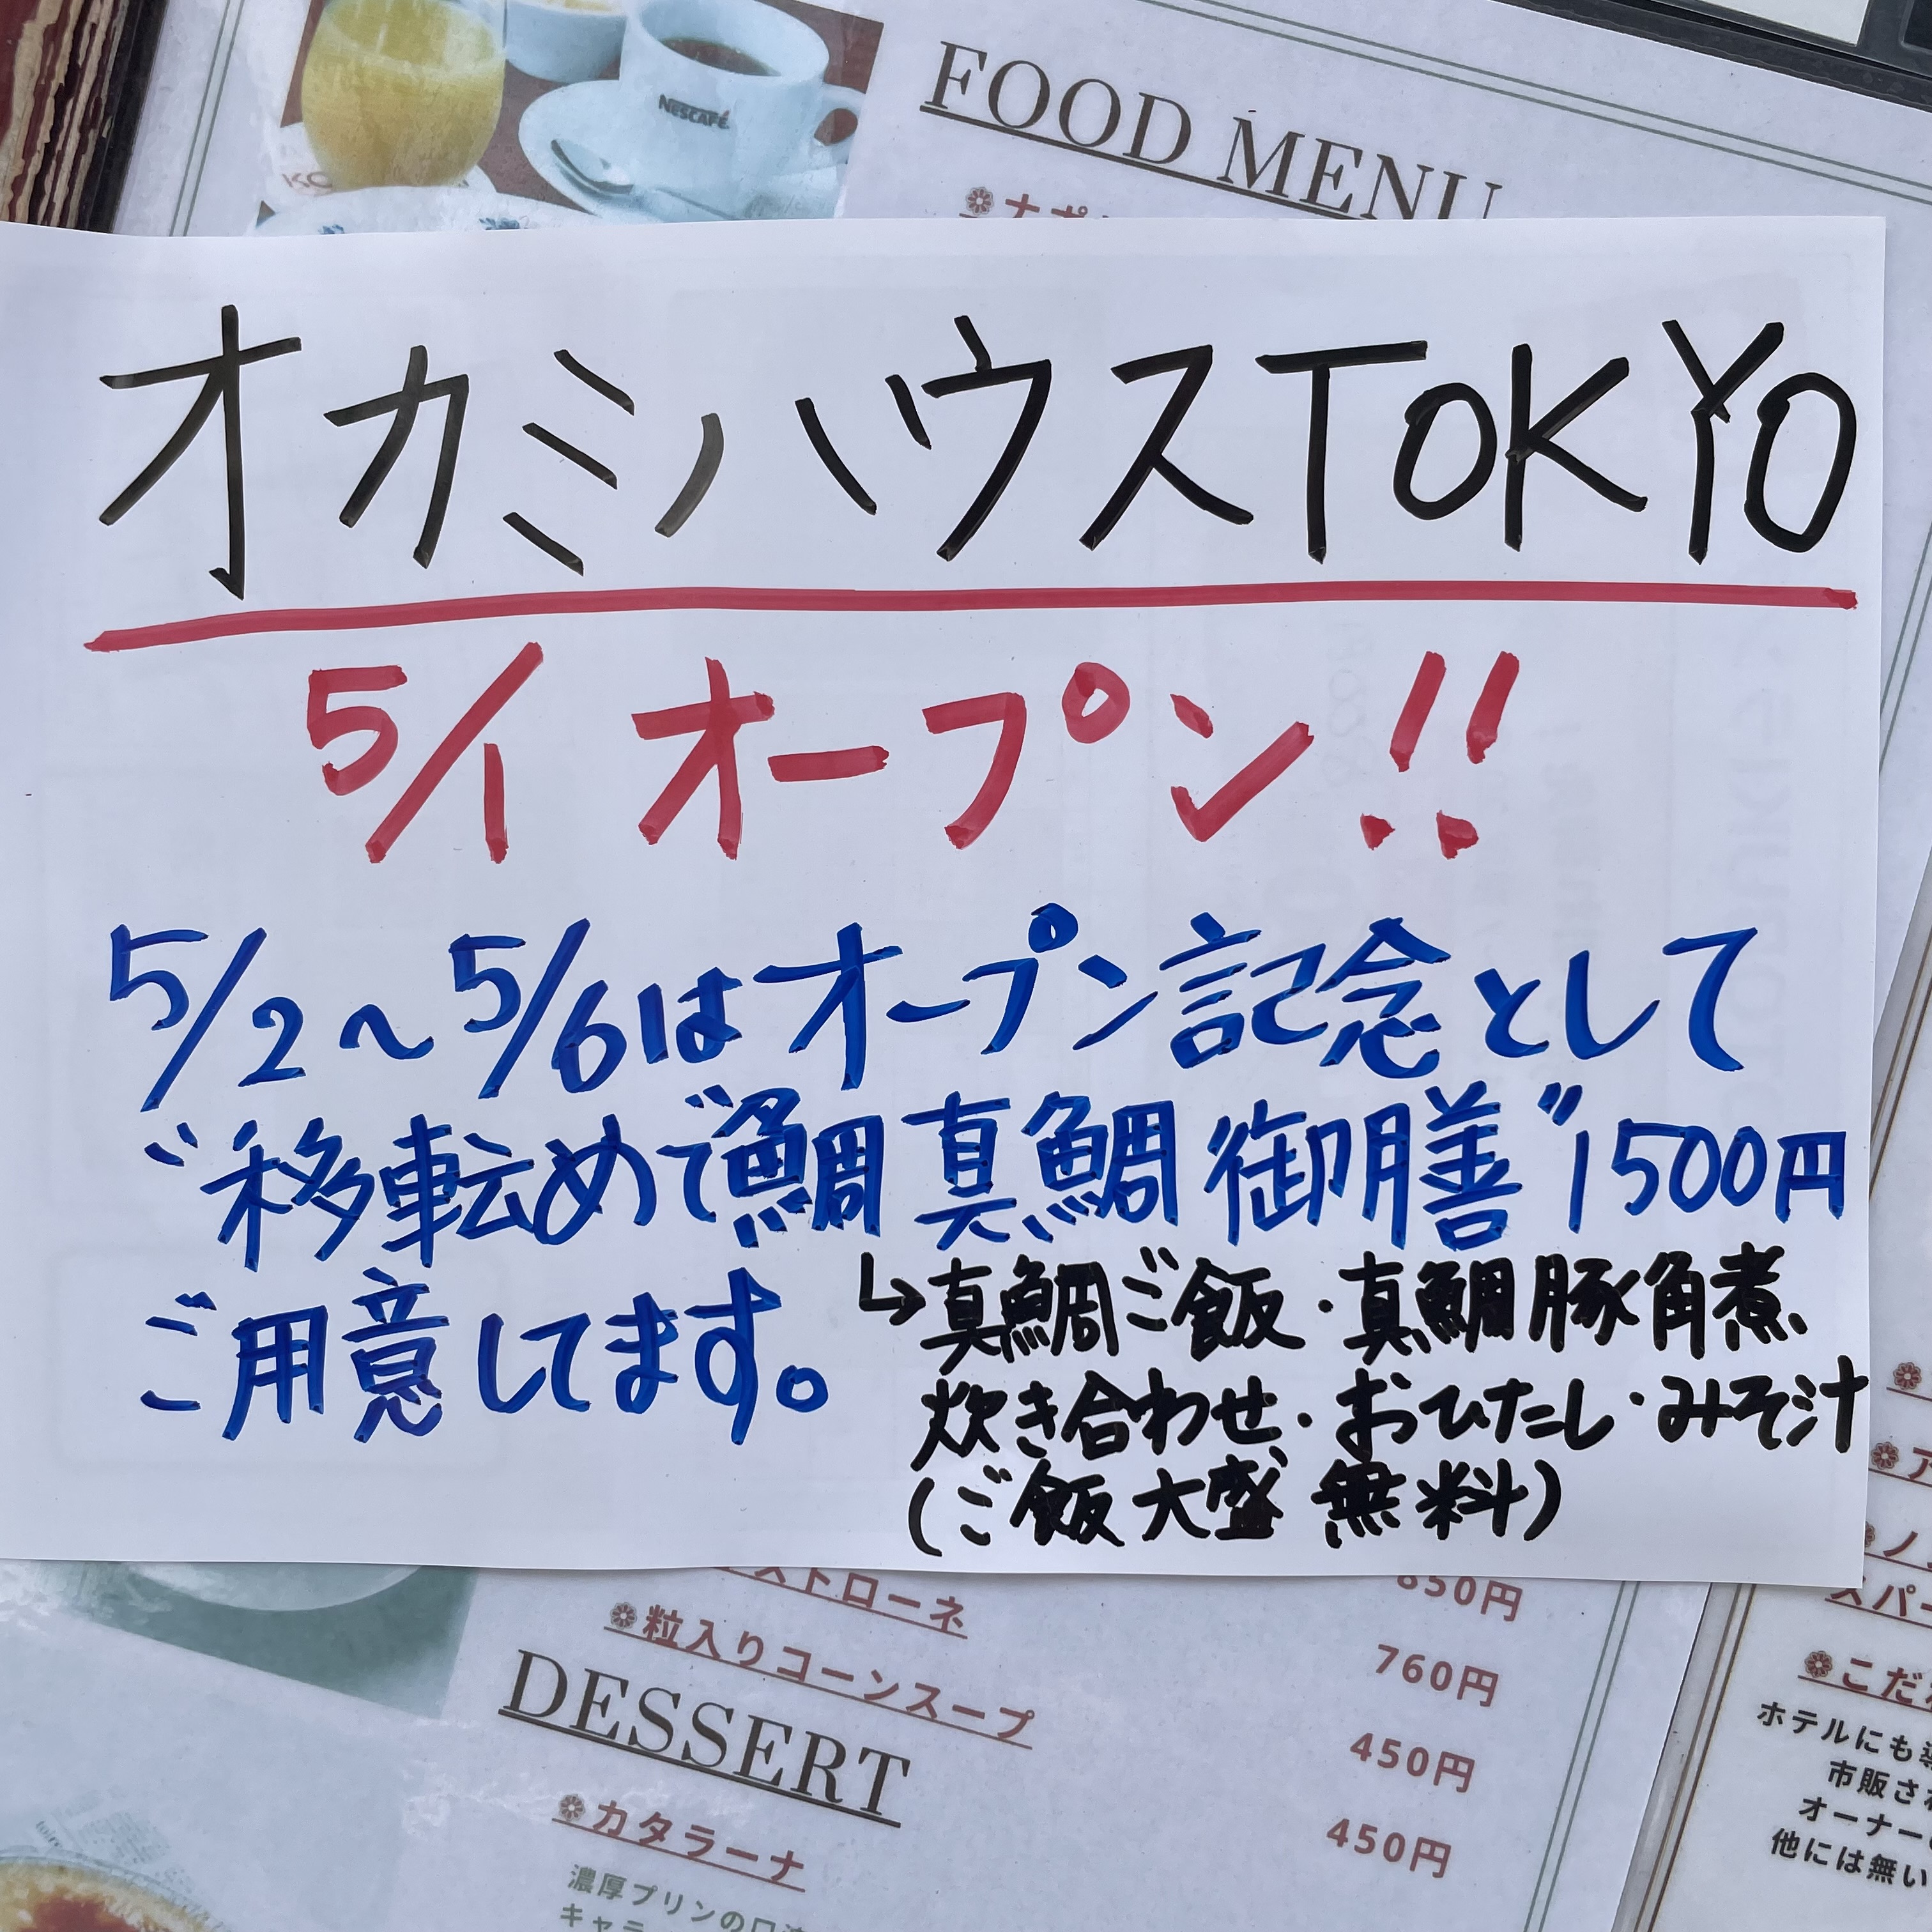 NESCAFÉ
FOOD MENU
オカミノハウスTOKYO
5/1 オープン!!
5/2～5/6はオープン記念として
〝移転めで鯛 真鯛御膳〞1500円
ご用意してます。
↳真鯛ご飯・真鯛豚角煮
炊き合わせ・おひたし・みそ汁
(ご飯大盛 無料)
ストローネ
850円
粒入りコーンスープ
760円
DESSERT
450円
カタラーナ
450円
濃厚プリンの口
キャラ
ア
ノ
スパー
こだ
ホテルにも
市販さ
オーナー
他には無い